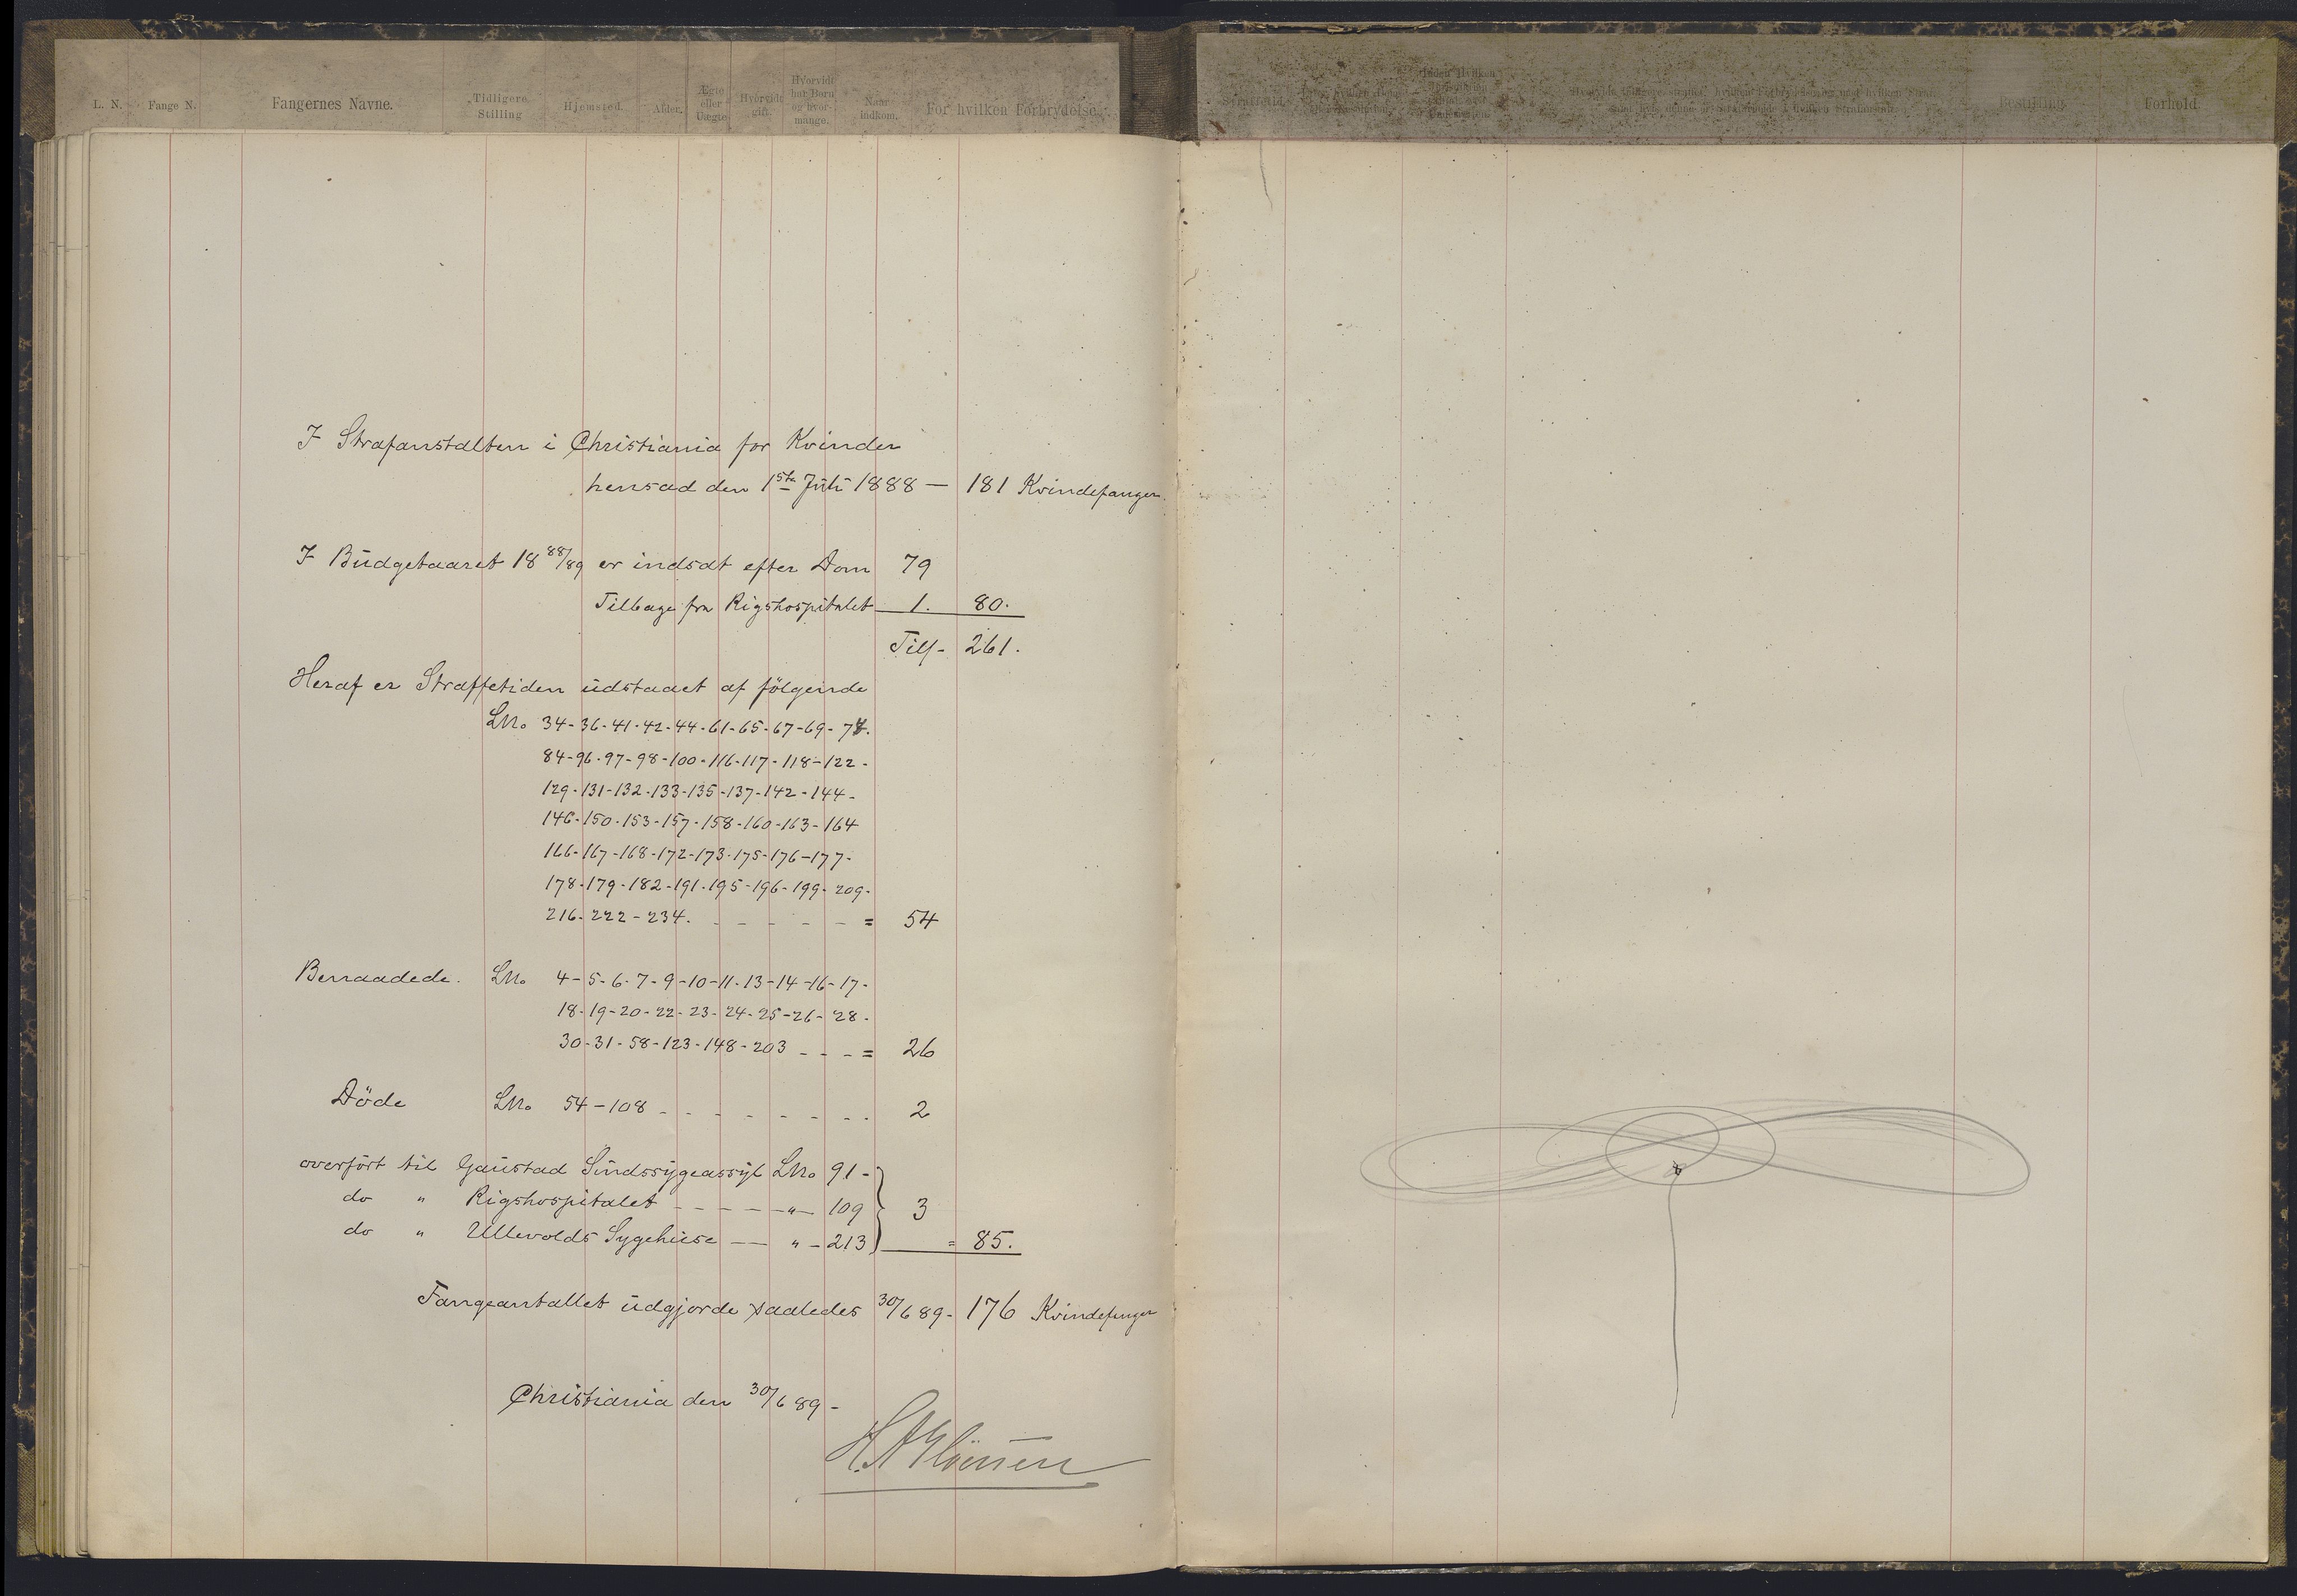 L. N. Fange N. Fangernes Navne. Tidligere Stilling Hjemsted. Alder. Ægte eller Uægte Hvorvidt gift. Hvorvidt har Børn og hvor- mange. Naar indkom. For hvilken Forbrydelse.
Straffetid. Bestilling. Forhold.
I Strafanstalten i Christiania for Kvinder
hensad den 1ste Juli 1888 — 181 Kvindefanger.
I Budgetaaret 18 88/89 er indsat efter Dom 79
Tilbage fra Rigshospitalet 1. 80.
Tils- 261.
Heraf er Straffetiden udstaaet af følgende
LNo 34-36-41-42-44-61-65-67-69-74.
84-96-97-98-100-116-117-118-122-
129-131-132-133-135-137-142-144-
146-150-153-157-158-160-163-164
166-167-168-172-173-175-176-177-
178-179-182-191-195-196-199-209-
216-222-234. - - - - - = 54
Benaadede. LNo 4-5-6-7-9-10-11-13-14-16-17-
18-19-20-22-23-24-25-26-28-
30-31-58-123-148-203 - - - = 26
Döde LNo 54-108 - - - - - - - - 2
overført til Gaustad Sindssygeassyl LNo 91-
do " Rigshospitalet - - - - - " - 109 } 3
do " Ullevolds Sygehuse — " - 213 = 85.
Fangeantallet udgjorde saaledes 30/6 89- 176 Kvindefanger
Christiania den 30/6 89-